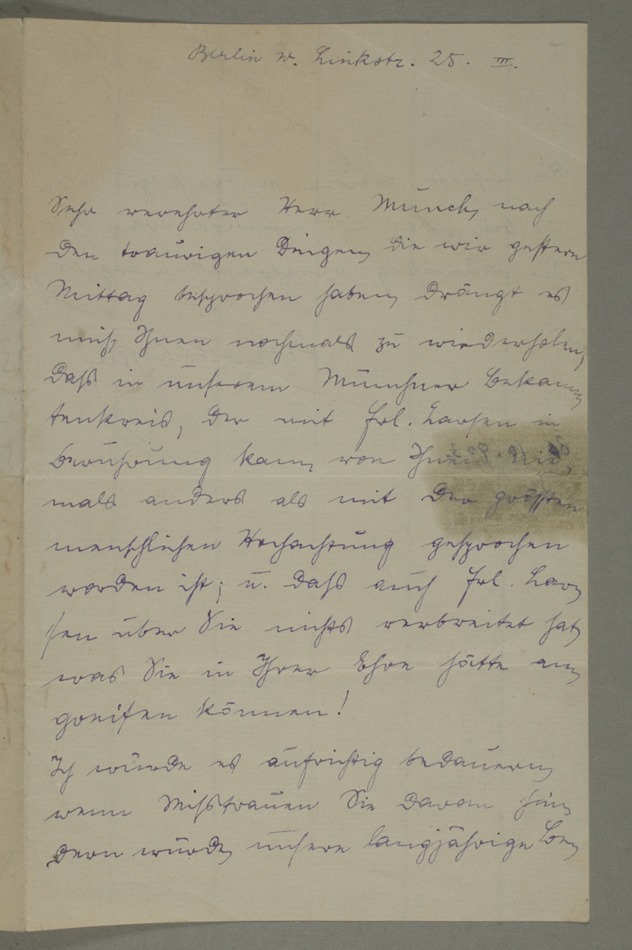 Berlin W. Linkstr. 25. III.
Sehr verehrter Herr Munch, nach
den traurigen Dingen, die wir gestern
Mittag besprochen haben, drängt es
mich, Ihnen nochmals zu wiederholen,
daß in unserem Münchner Bekann
tenkreis, der mit Frl. Larsen in
Berührung kam, von Ihnen nie
mals anders als mit der grössten
menschlichen Hochachtung gesprochen
worden ist; u. daß auch Frl. Lar
sen über Sie nichts verbreitet hat,
was Sie in Ihrer Ehre hätte an
greifen können!
Ich würde es aufrichtig bedauern,
wenn Misstrauen Sie daran hin
dern würde, unsere langjährige Be